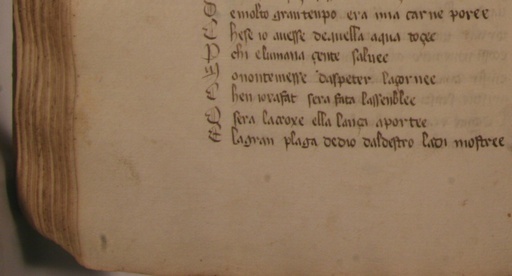 E molto gran tenpo era mia carne poree
C hese io auesse de quella aqua toçee
P chi elumana çente saluee
O nontemesse daspeter lasornee
C hen iorafat sera fata lassenblee
C sera lacroxe ella lança aportee
E lagran plaga dedio daldestro ladi mostree